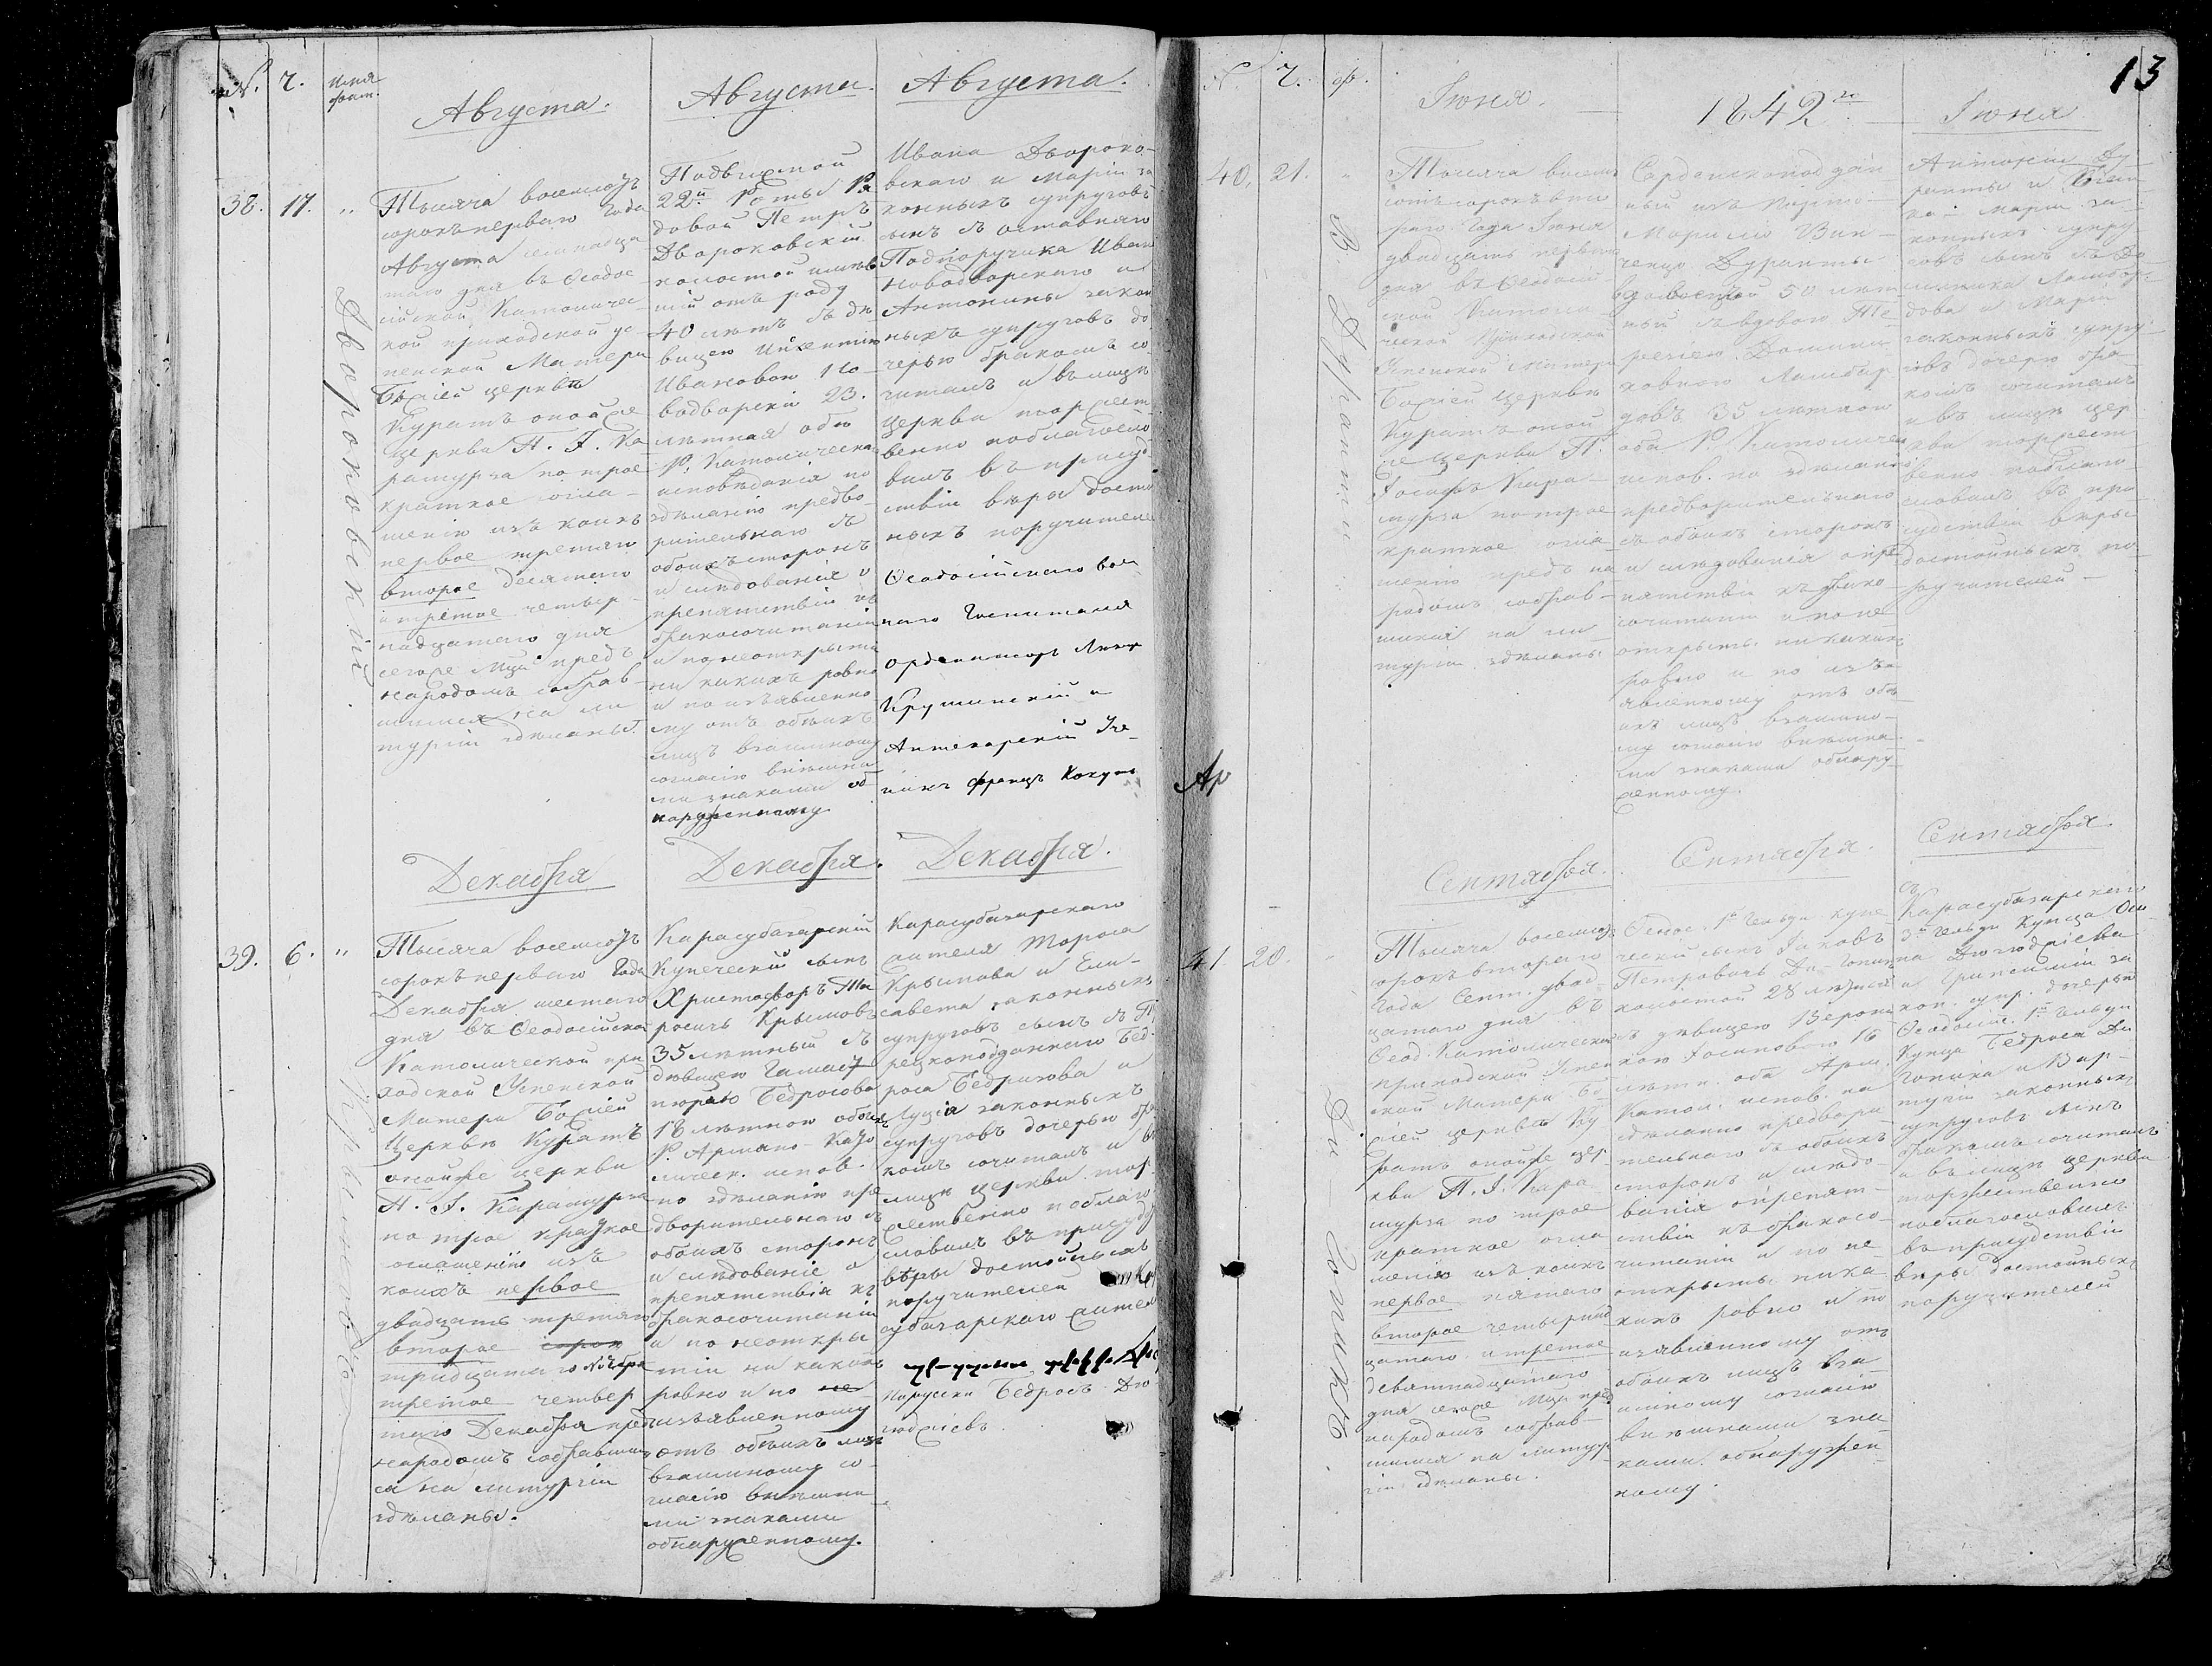 №. Ч. Имя фам.
Августа.
38. 17. "
Двороковскій.
Тысяча восемсотъ
сорокъ перваго Года
Августа семнадца
таго дня въ Ѳеодос
сійской Католичес-
кой приходской Ус-
пенской Матери
Божіей церквѣ
Куратъ онойже
церкви П. І. Ка
рамурза по трое
кратное огла-
шенію изъ коихъ
первое третяго
второе десятаго
и третое четыр-
надцатаго дня
сегоже Мца предъ
народомъ собрав-
шимся на ли
тургіи здѣланы.
Августа.
Подвижной
22й Роты Ря
довой Петръ
Двороковскій
холостой имѣю
щій отъ роду
40 лѣтъ съ дѣ
вицею
Ивановою Но-
водворскій 23.
лѣтная обѣ
Р. Католическаго
исповѣданія по
здѣланію предво-
рительнаго съ
обоихъ сторонъ
и слѣдованія о
препятствіи къ
бракосочитанію
и по неоткрытіи
ни какихъ ровно
и по изъявленно
му отъ обѣихъ
лицъ взаимному
согласію внѣшни
ми знаками об
наруженному
Августа.
Ивана Двороко-
вскаго и Маріи за
конныхъ супруговъ
сынъ съ отставнаго
Подпоручика Ивана
Новодворскаго и
Антонины закон
ныхъ супруговъ до
черью бракомъ со
читалъ и въ лицѣ
церкви торжест
венно поблагосло
вилъ въ присуд
ствіи вѣры досто
ныхъ поручителей
Ѳеодосійскаго вое
наго Госпиталя
Ордена
Крушинскій и
Аптекарскій Уче-
никъ Францъ
Декабря
39. 6. "
Тысяча восемсотъ
сорокъ перваго Года
Декабря шестаго
дня въ Ѳеодосійской
Католической при
ходской Успенской
Матери Божіей
Церквѣ Куратъ
онойже церкви
П. І. Карамурза
по трое кратное
оглашенію изъ
коихъ первое
двадцать третяго
второе сорок
тридцатаго Ноября
третое четвер
таго Декабря пре
народомъ собравшим
ся на литургіи
здѣланы.
Декабря.
Карасубазарскій
Купеческій сынъ
Христофоръ Та
росичъ Крымовъ
35 лѣтный съ
дѣвицею
Бедросова
18 лѣтною обоихъ
Р. Армяно-Като
личес. испов.
по здѣланію пре
дворительнаго съ
обоихъ сторонъ
и слѣдованіе о
препятствіи къ
бракосочитанію
и по неоткры
тіи ни какихъ
ровно и по не
изъявленному
отъ обѣихъ лицъ
взаимному со-
гласію внѣшни
ми знаками
обнаруженному.
Декабря.
Карасубазарскаго
жителя Тороса
Крымова и Ели-
савета законныхъ
супруговъ сынъ съ Ту
рецкоподданнаго Бед-
роса Бедризова и
Луція законныхъ
супруговъ дочерью бра
комъ сочиталъ и въ
лицѣ церкви тор
жественно поблаго
словилъ въ присуд
вѣры достойныхъ
поручителей
субазарскаго жителя
Порусски Бедросъ
13
N. Ч. ф.
Іюня.
1842го
Іюня
40. 21. "
В. Дуранте
Тысяча восем
сотъ сорокъ вто
раго Года Іюня
двадцать перваго
дня въ Ѳеодосій
ской Католи
ческой Приходской
Успенской Матери
Божіей церквѣ
Куратъ оной
же церкви П.
Іосифъ Кара-
мурза по трое
кратное огла-
шенію предъ на
родомъ собрав-
шимся на ли
тургіи здѣланы
Сардинскоподдан
ный изъ Порто-
Морисо Вин-
ченцо Дуранте
вдовецъ 50 лѣт
ный съ вдовою Те
резіею Домини
ковною Ламбар
довъ 35 лѣтною
оба Р. Католичес
испов. по здѣланію
предворительнаго
съ обоихъ сторонъ
и слѣдованія опре
пятствіи къ брако
сочитанію и по не
открыты никакихъ
ровно и по изъ
явленному отъ обѣ
ихъ лицъ взаимно-
му согласію внѣшни-
ми знаками обнару
женному.
Антоніи Ду
ранте и
Маріи за
конныхъ супру
говъ сынъ съ До
миника Ламбар-
дова и Маріи
законныхъ супру
говъ дочерю бра
комъ сочиталъ
и въ лицѣ цер
кви торжест
венно поблаго
словилъ въ при
судствіи вѣры
достойныхъ по
ручителей
Ар
Сентября.
41. 20. "
Сентября.
Сентября.
Тысяча восемсотъ
сорокъ втораго
Года Сент. двад
цатаго дня въ
Ѳеод. Католической
приходской Успен
ской Матери Бо
жіей церквѣ Ку
ратъ онойже цер
кви П. І. Кара
мурза по трое
кратное огла
шенію изъ коихъ
первое пятаго
второе четырнад
цатаго и третое
девятнадцатаго
дня сегоже Мца пред
народомъ собрав-
шимся на литур
гіи здѣланы.
Ѳеодос. 1й Гильди купе
ческій сынъ Яковъ
Петровичъ
холостой 28 лѣтный
съ дѣвицею Верони
кою Іосиповою 16
лѣтн. оба Арм.
Катол. испов. по
здѣланію предвори
тельнаго съ обоихъ
сторонъ и слѣдо-
ванія опрепят-
ствіи къ бракосо-
читаніи и по не-
открыты ника
кихъ ровно и по
изявленному отъ
обоихъ лицъ вза
имному согласію
внѣшними зна
ками обнаружен
ному.
Карасубазарскаго
3й Гильди Купца Оси
и за
кон. супр. дочерью
Ѳеодосій. 1й Гильди
Купца Бедроса
и Вар-
законныхъ
супруговъ сынъ
бракомъ сочиталъ
и въ лицѣ церкви
торжественно
поблагословилъ
въ присудствіи
вѣры достойныхъ
поручителей